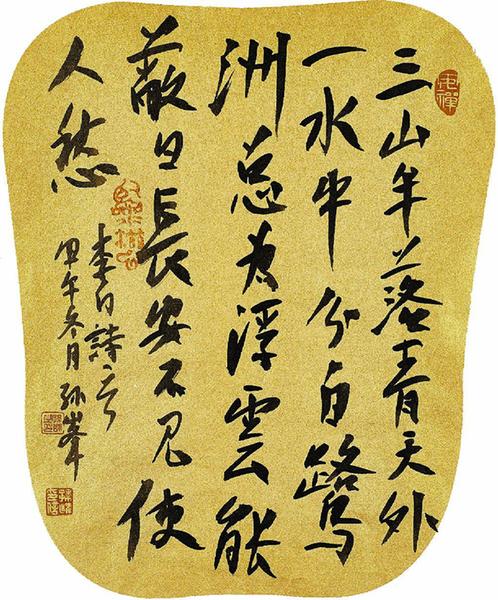 三山半落青天外
一水中分白鷺
洲总为浮雲能
蔽日長安不見使
人愁
李白詩
甲午冬月孙峯